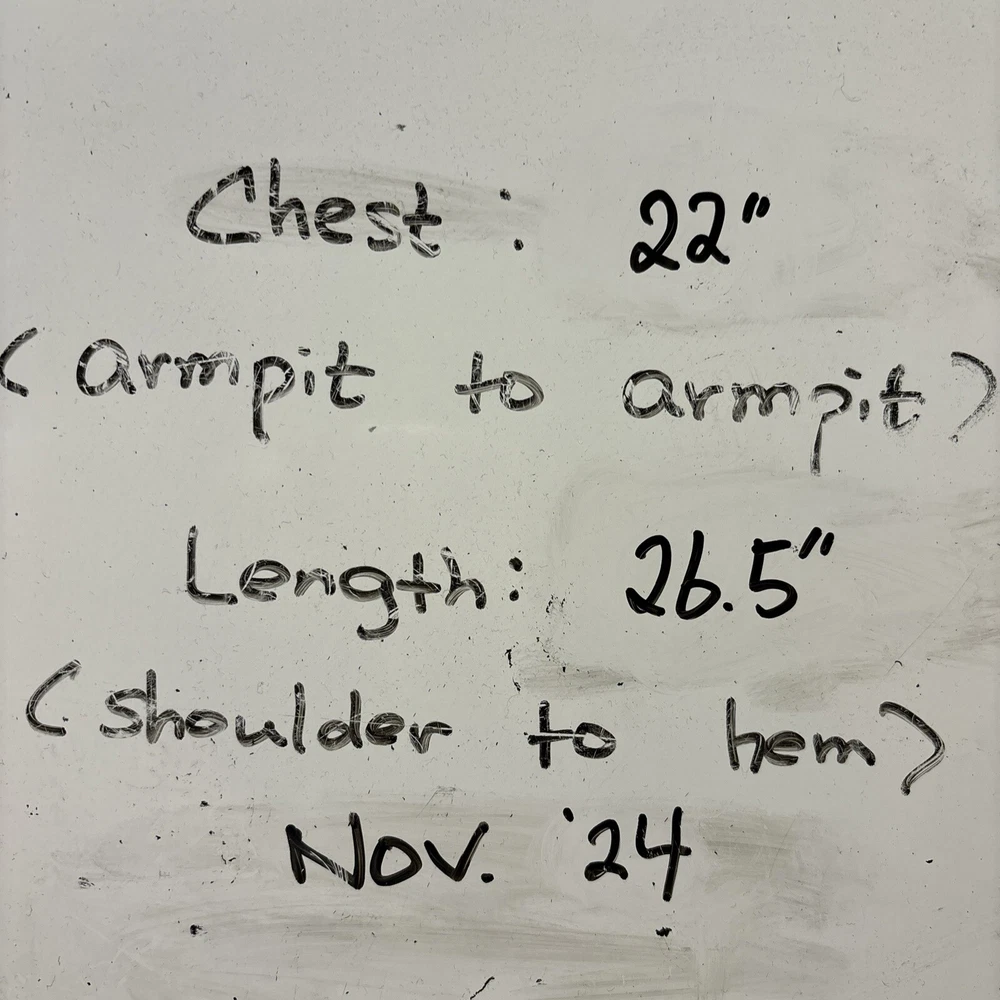 Chest : 22"
(armpit to armpit)
Length: 26.5"
(shoulder to hem)
Nov. '24